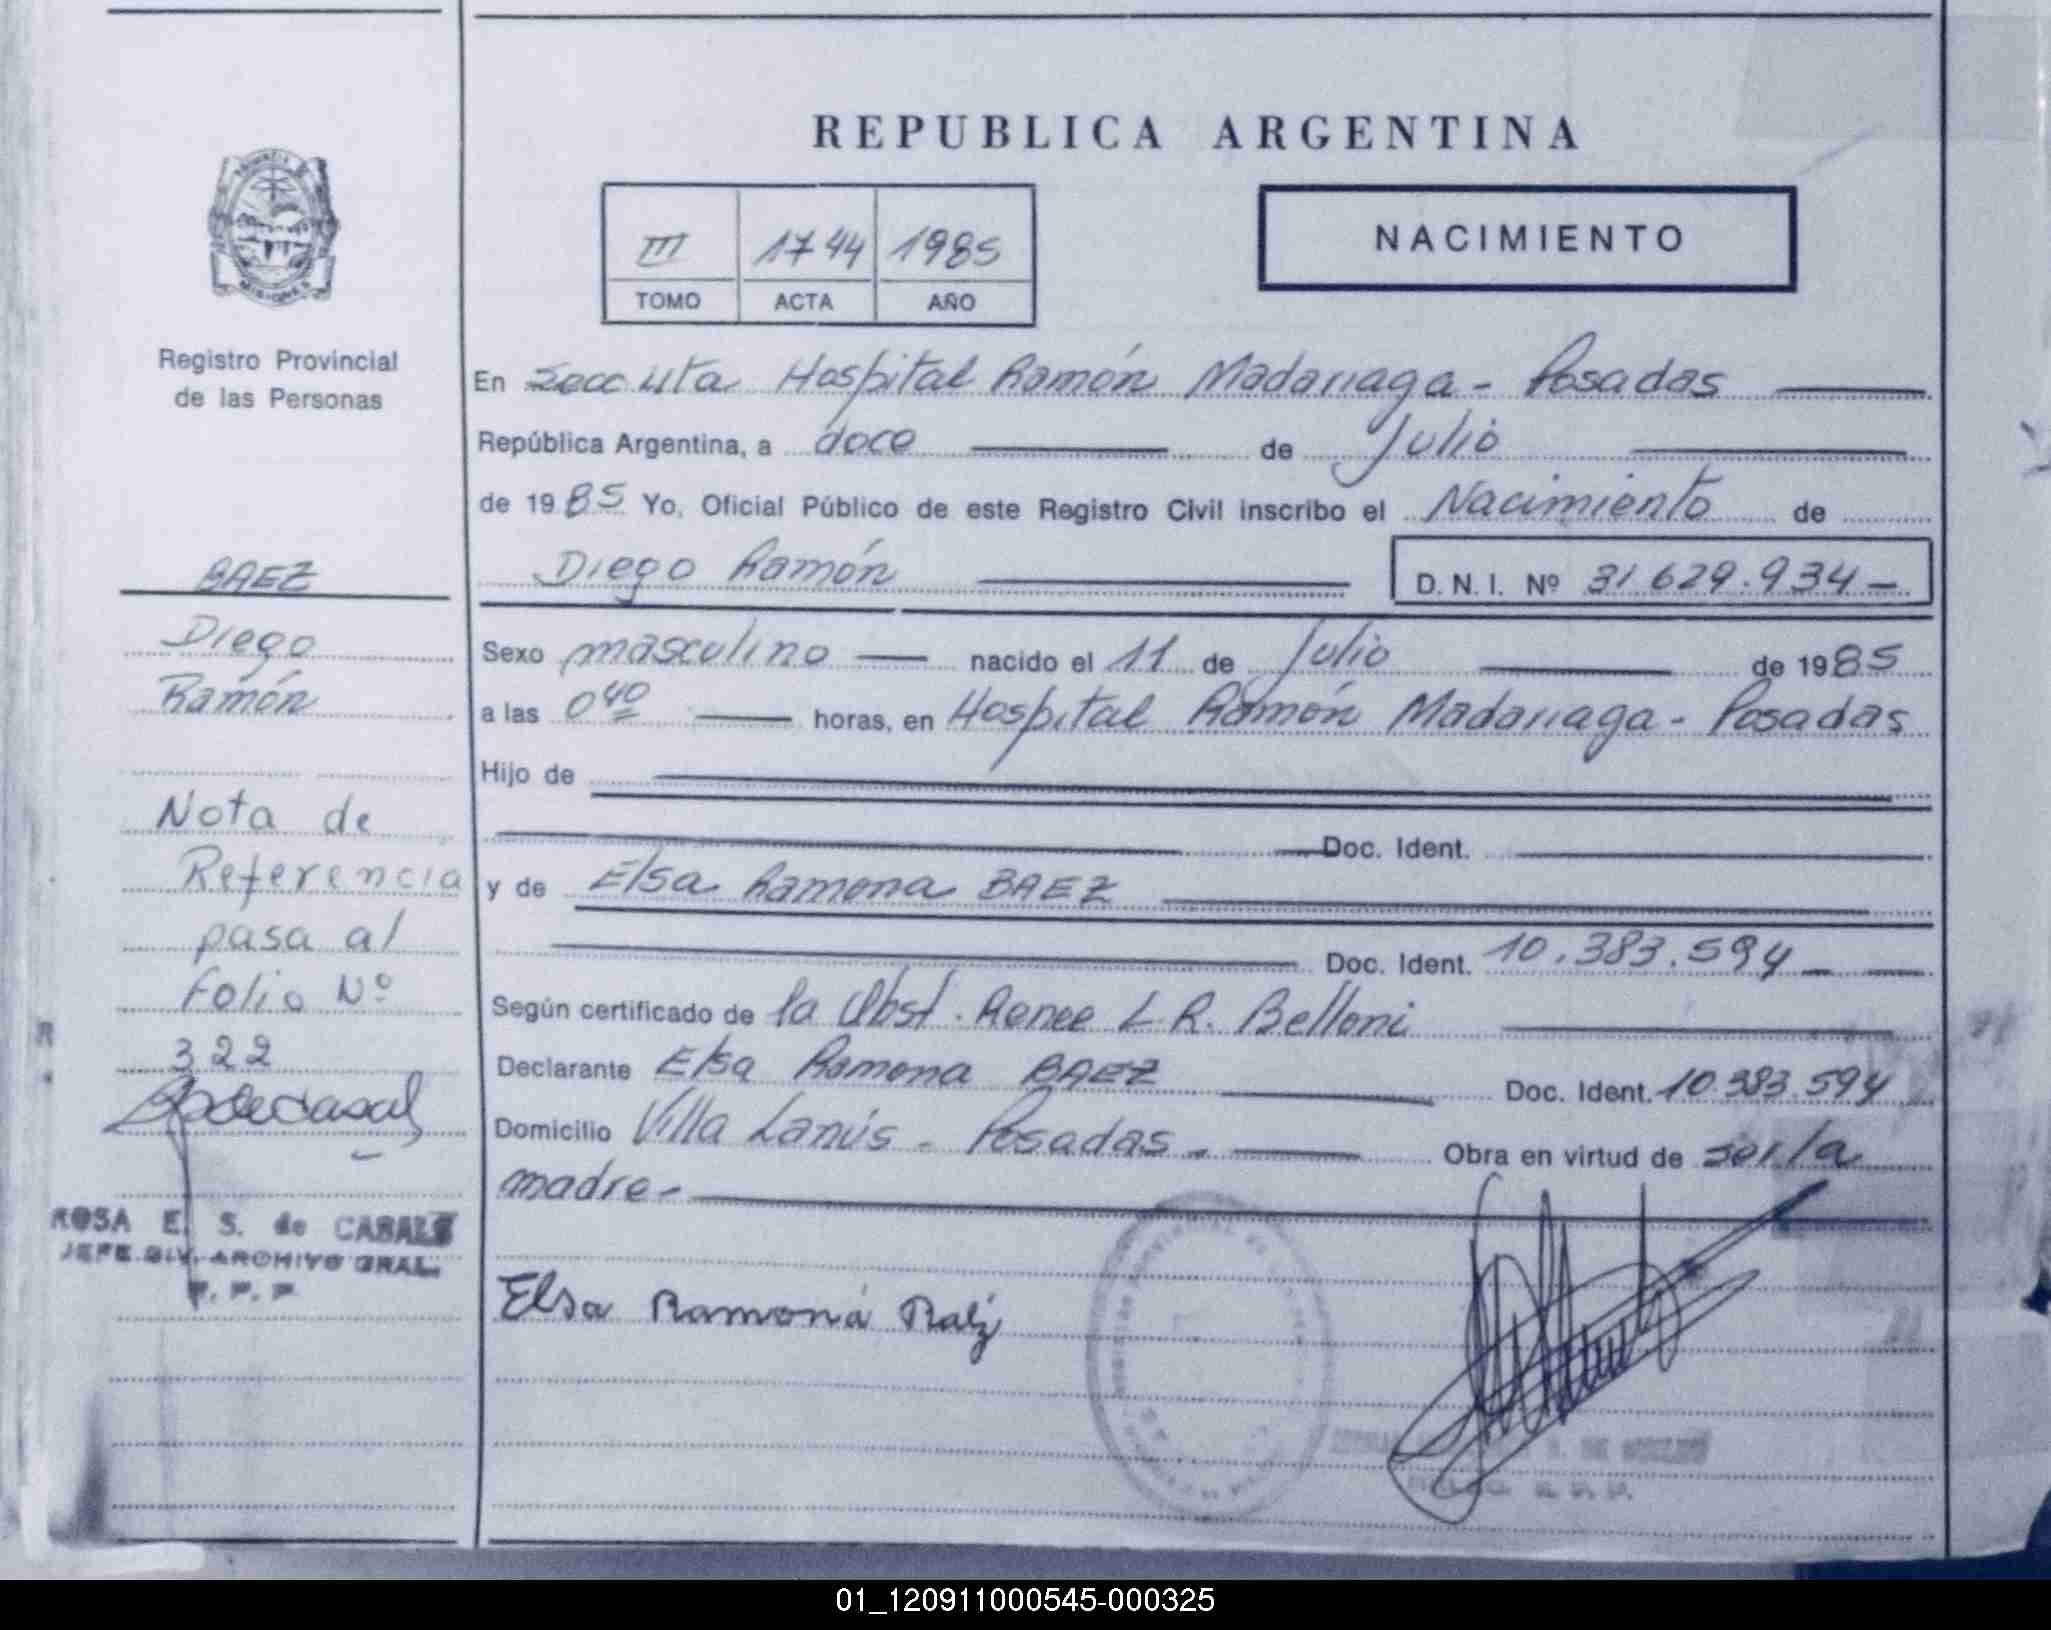 REPUBLICA ARGENTINA
III 1744 1985
TOMO ACTA AÑO
NACIMIENTO
PROVINCIA DE
MISIONES
Registro Provincial
de las Personas
BAEZ
Diego
Ramón
Nota de
Referencia
pasa al
Folio Nº
322
ROSA E. S. de CASALS
JEFE DIV. ARCHIVO GRAL.
R. P. P
En Secc 4ta Hospital Ramón Madariaga - Posadas
República Argentina, a doce de Julio
de 1985 Yo, Oficial Público de este Registro Civil inscribo el Nacimiento de
Diego Ramón D. N. I. Nº 31.629.934-
Sexo masculino nacido el 11 de Julio de 1985
a las 0 40 horas, en Hospital Ramón Madariaga - Posadas
Hijo de
Doc. Ident.
y de Elsa Ramona BAEZ
Doc. Ident. 10.383.594
Según certificado de la Obst. Renee L R. Belloni
Declarante Elsa Ramona BAEZ Doc. Ident. 10.383.594
Domicilio Villa Lanús - Posadas - Obra en virtud de ser la
madre-
Elsa Ramona
01_120911000545-000325